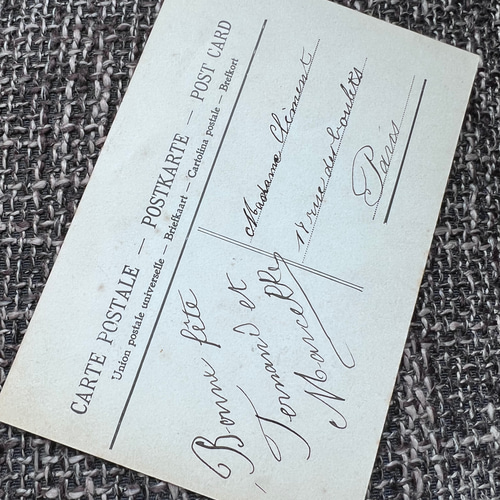 CARTE POSTALE — POSTKARTE — POST CARD
Union postale universelle — Briefkaart — Cartolina postale — Brefkort
Bonne fête
Fernand et
Marcelle
Madame Clément
17 rue des boulets
Paris